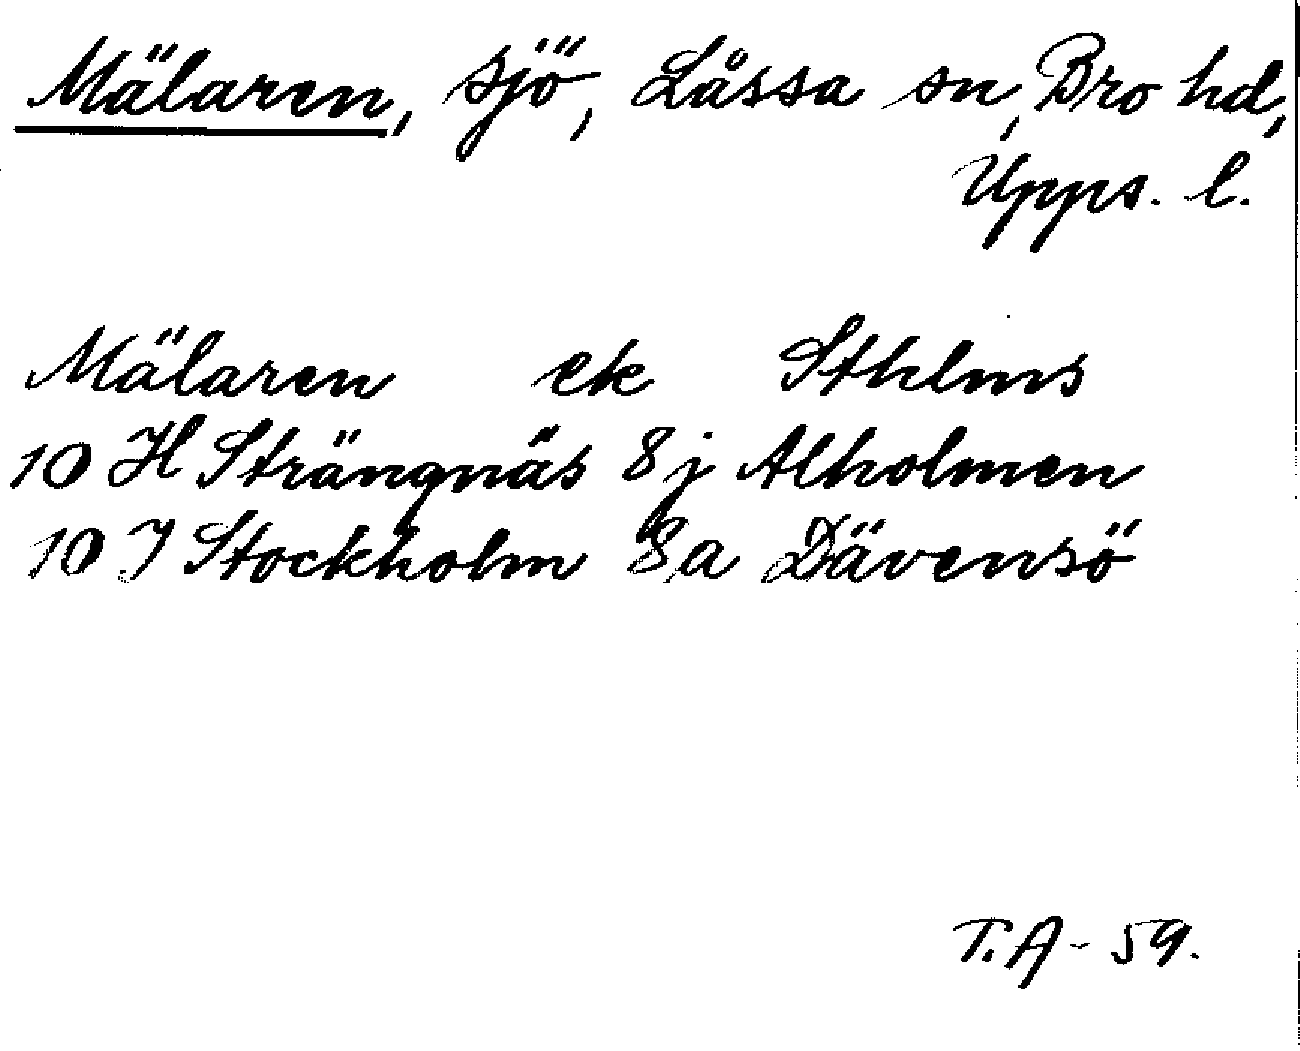 Mälaren, sjö, Låssa sn, Bro hd,
Upps. l.
Mälaren ek Sthlms
10 H Strängnäs 8j Alholmen
10 I Stockholm 8a Dävensö
T.A - 59.